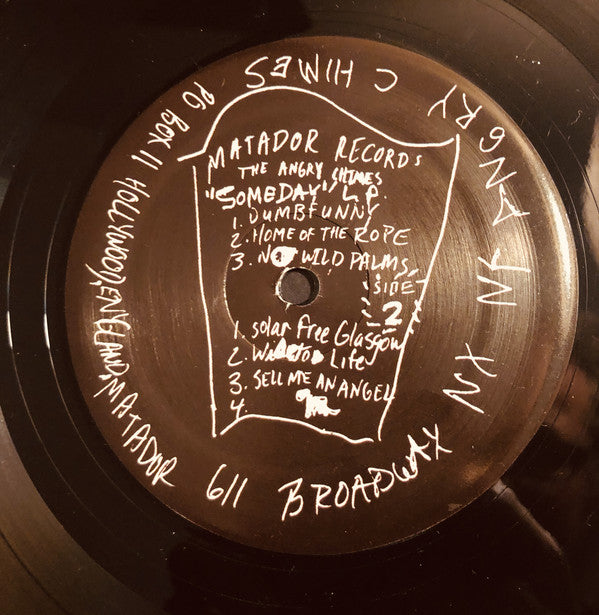 MATADOR RECORDS
THE ANGRY CHIMES
"SOMEDAY" L.P.
1. DUMBFUNNY
2. HOME OF THE ROPE
3. NO WILD PALMS
SIDE
2
1. Solar Free Glasgow
2. Life
3. SELL ME AN ANGEL
4.
PO BOX 11 HOLLYWOOD, ENGLAND, MATADOR 611 BROADWAY NY NY ANGRY CHIMES